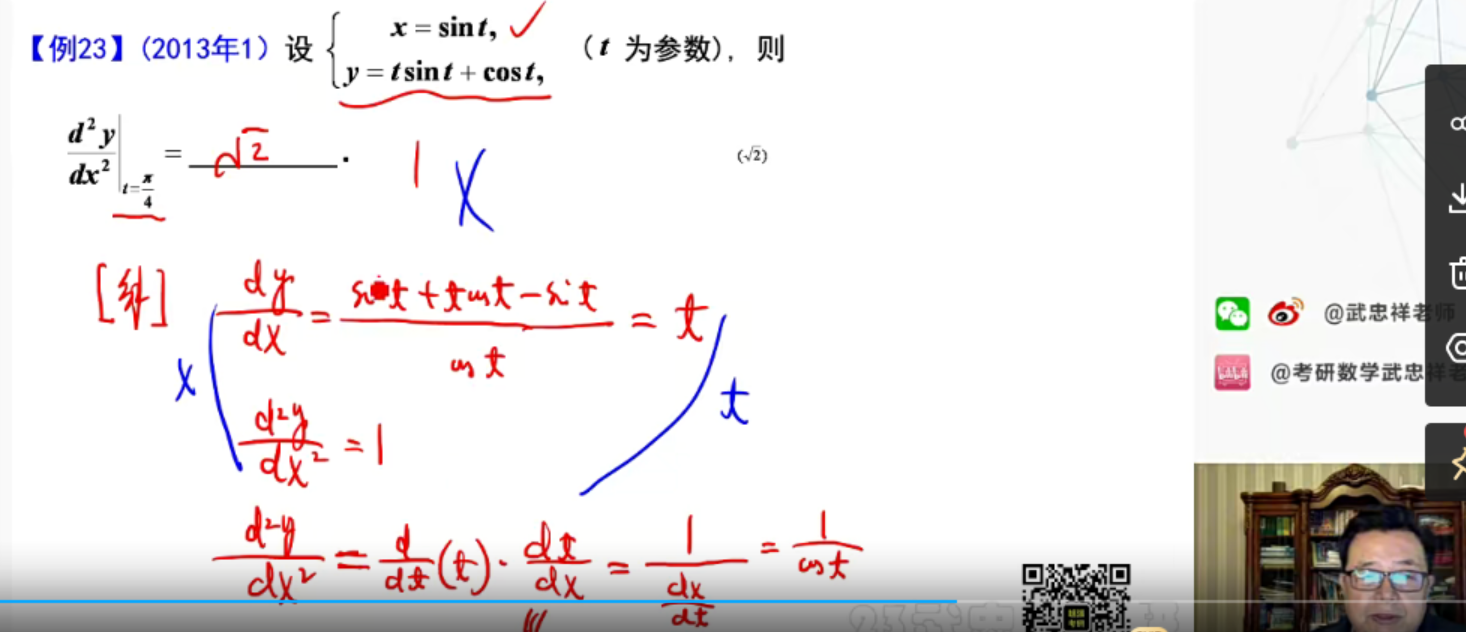 【例23】(2013年1) 设 { x = sint, (t 为参数), 则
y = tsint + cost,
d²y/dx² |t=π/4 = √2 .
(√2)
1 X
[解] dy/dx = (sint + tcost − sint)/cost = t
x
t
d²y/dx² = 1
d²y/dx² = d/dt (t) · dt/dx = 1/(dx/dt) = 1/cost
@武忠祥老师
@考研数学武忠祥老